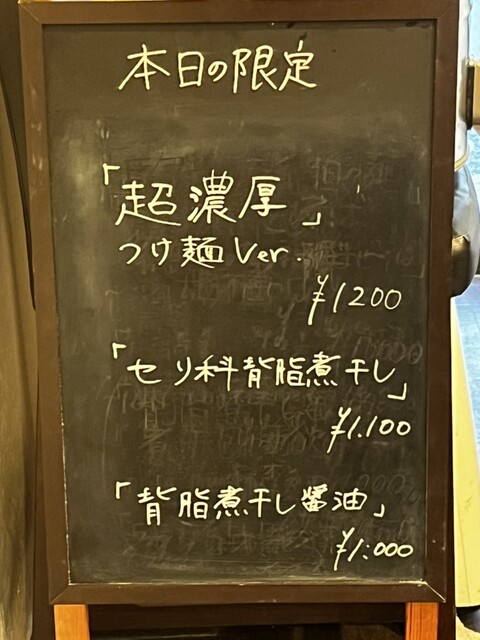 本日の限定
「超濃厚」
つけ麺Ver.
¥1200
「セリ科背脂煮干し」
¥1.100
「背脂煮干し醤油」
¥1.000